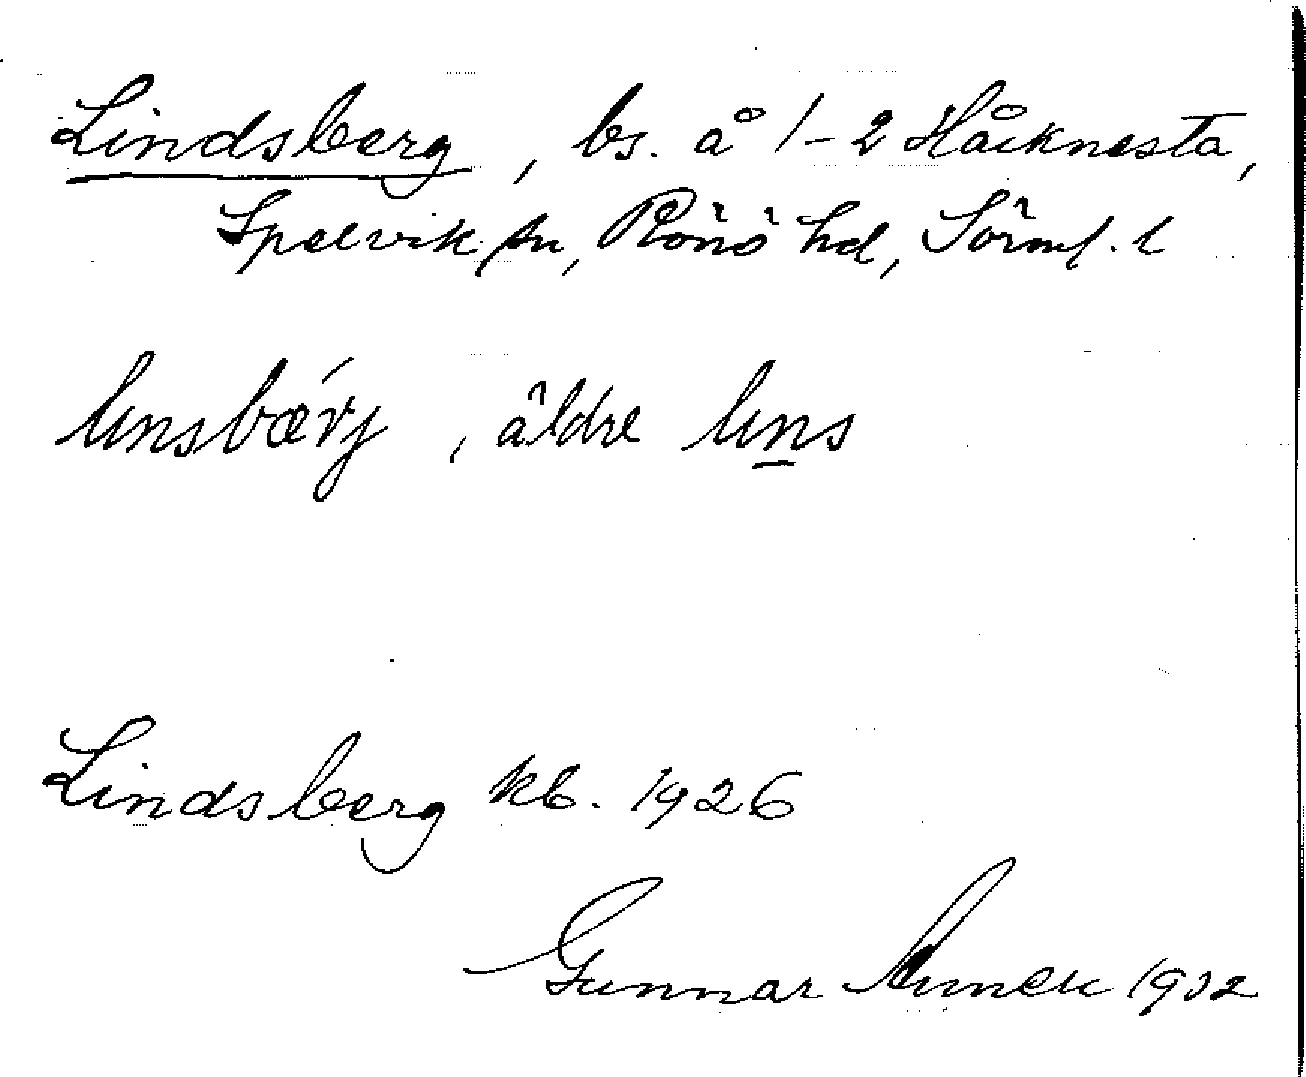 Lindsberg, bs. å 1-2 Håcknesta,
Spelvik sn, Rönö hd, Sörml. l
linsbærj, äldre lins
Lindsberg kb. 1926
Gunnar 1932